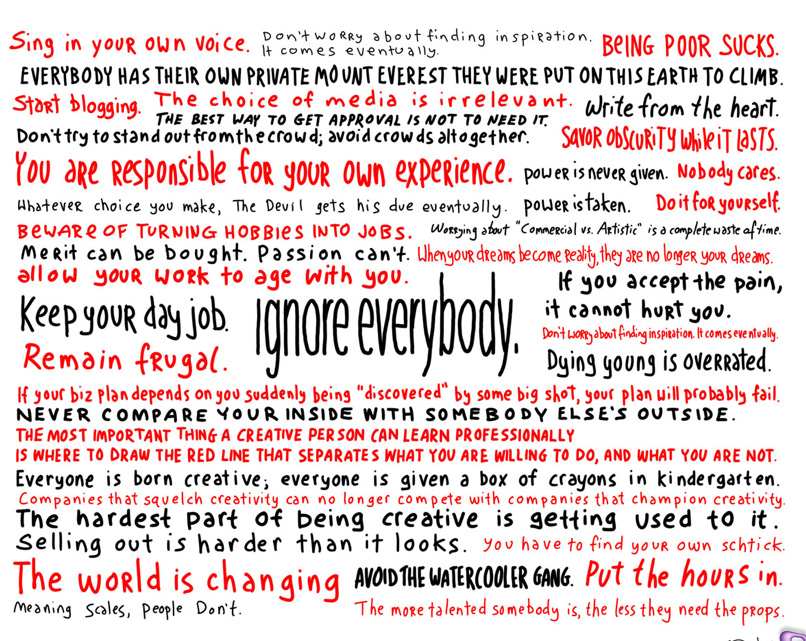 Sing in your own voice. Don't worry about finding inspiration. It comes eventually. BEING POOR SUCKS.
EVERYBODY HAS THEIR OWN PRIVATE MOUNT EVEREST THEY WERE PUT ON THIS EARTH TO CLIMB.
Start blogging. The choice of media is irrelevant. Write from the heart.
THE BEST WAY TO GET APPROVAL IS NOT TO NEED IT.
Don't try to stand out from the crowd; avoid crowds altogether. SAVOR OBSCURITY while iT LASTS.
You are Responsible for your own experience. power is never given. Nobody cares.
Whatever choice you make, The Devil gets his due eventually. power is taken. Do it for yourself.
BEWARE OF TURNING HOBBIES INTO JOBS. Worrying about "Commercial vs. Artistic" is a complete waste of time.
Merit can be bought. Passion can't. When your dreams become reality, they are no longer your dreams.
allow your work to age with you. If you accept the pain,
it cannot hurt you.
Keep your day job. Ignore everybody. Don't worry about finding inspiration. It comes eventually.
Remain frugal. Dying young is overrated.
If your biz plan depends on you suddenly being "discovered" by some big shot, your plan will probably fail.
NEVER COMPARE YOUR INSIDE WITH SOMEBODY ELSE'S OUTSIDE.
THE MOST IMPORTANT THING A CREATIVE PERSON CAN LEARN PROFESSIONALLY
IS WHERE TO DRAW THE RED LINE THAT SEPARATES WHAT YOU ARE WILLING TO DO, AND WHAT YOU ARE NOT.
Everyone is born creative; everyone is given a box of crayons in kindergarten.
Companies that squelch creativity can no longer compete with companies that champion creativity.
The hardest part of being creative is getting used to it.
Selling out is harder than it looks. you have to find your own schtick.
The world is changing AVOID THE WATERCOOLER GANG. Put the hours in.
Meaning Scales, people Don't. The more talented somebody is, the less they need the props.